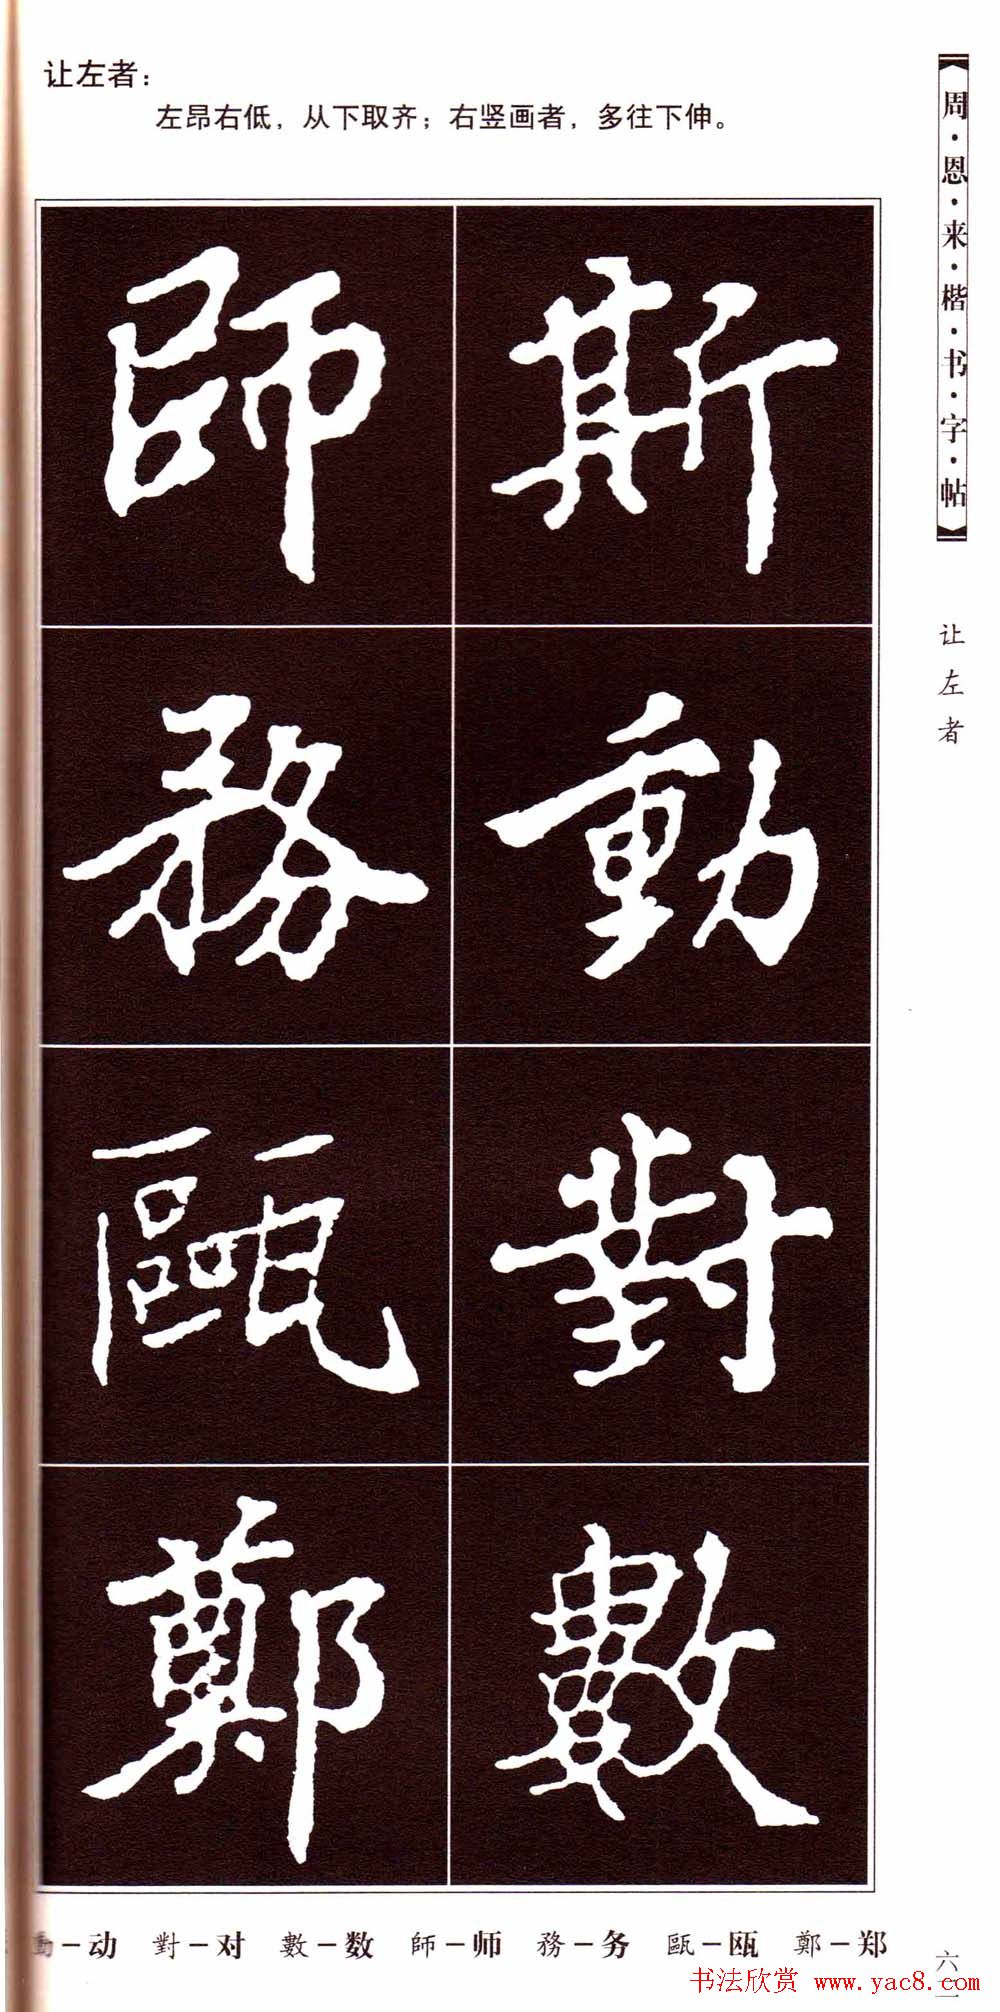 让左者：
左昂右低，从下取齐；右竖画者，多往下伸。
周·恩·来·楷·书·字·帖
让左者
斯動對數
師務甌鄭
動－动 對－对 數－数 師－师 務－务 甌－瓯 鄭－郑
书法欣赏 www.yac8.com